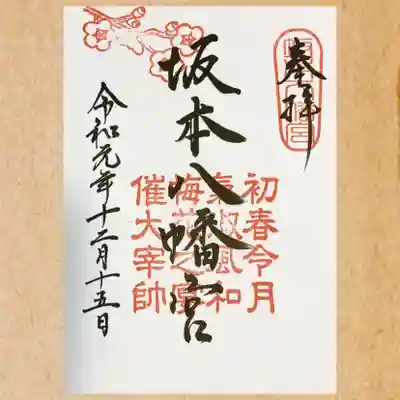 奉拝
坂本八幡宮
初春令月
気淑風和
梅花之宴
催大宰帥
令和元年十二月十五日